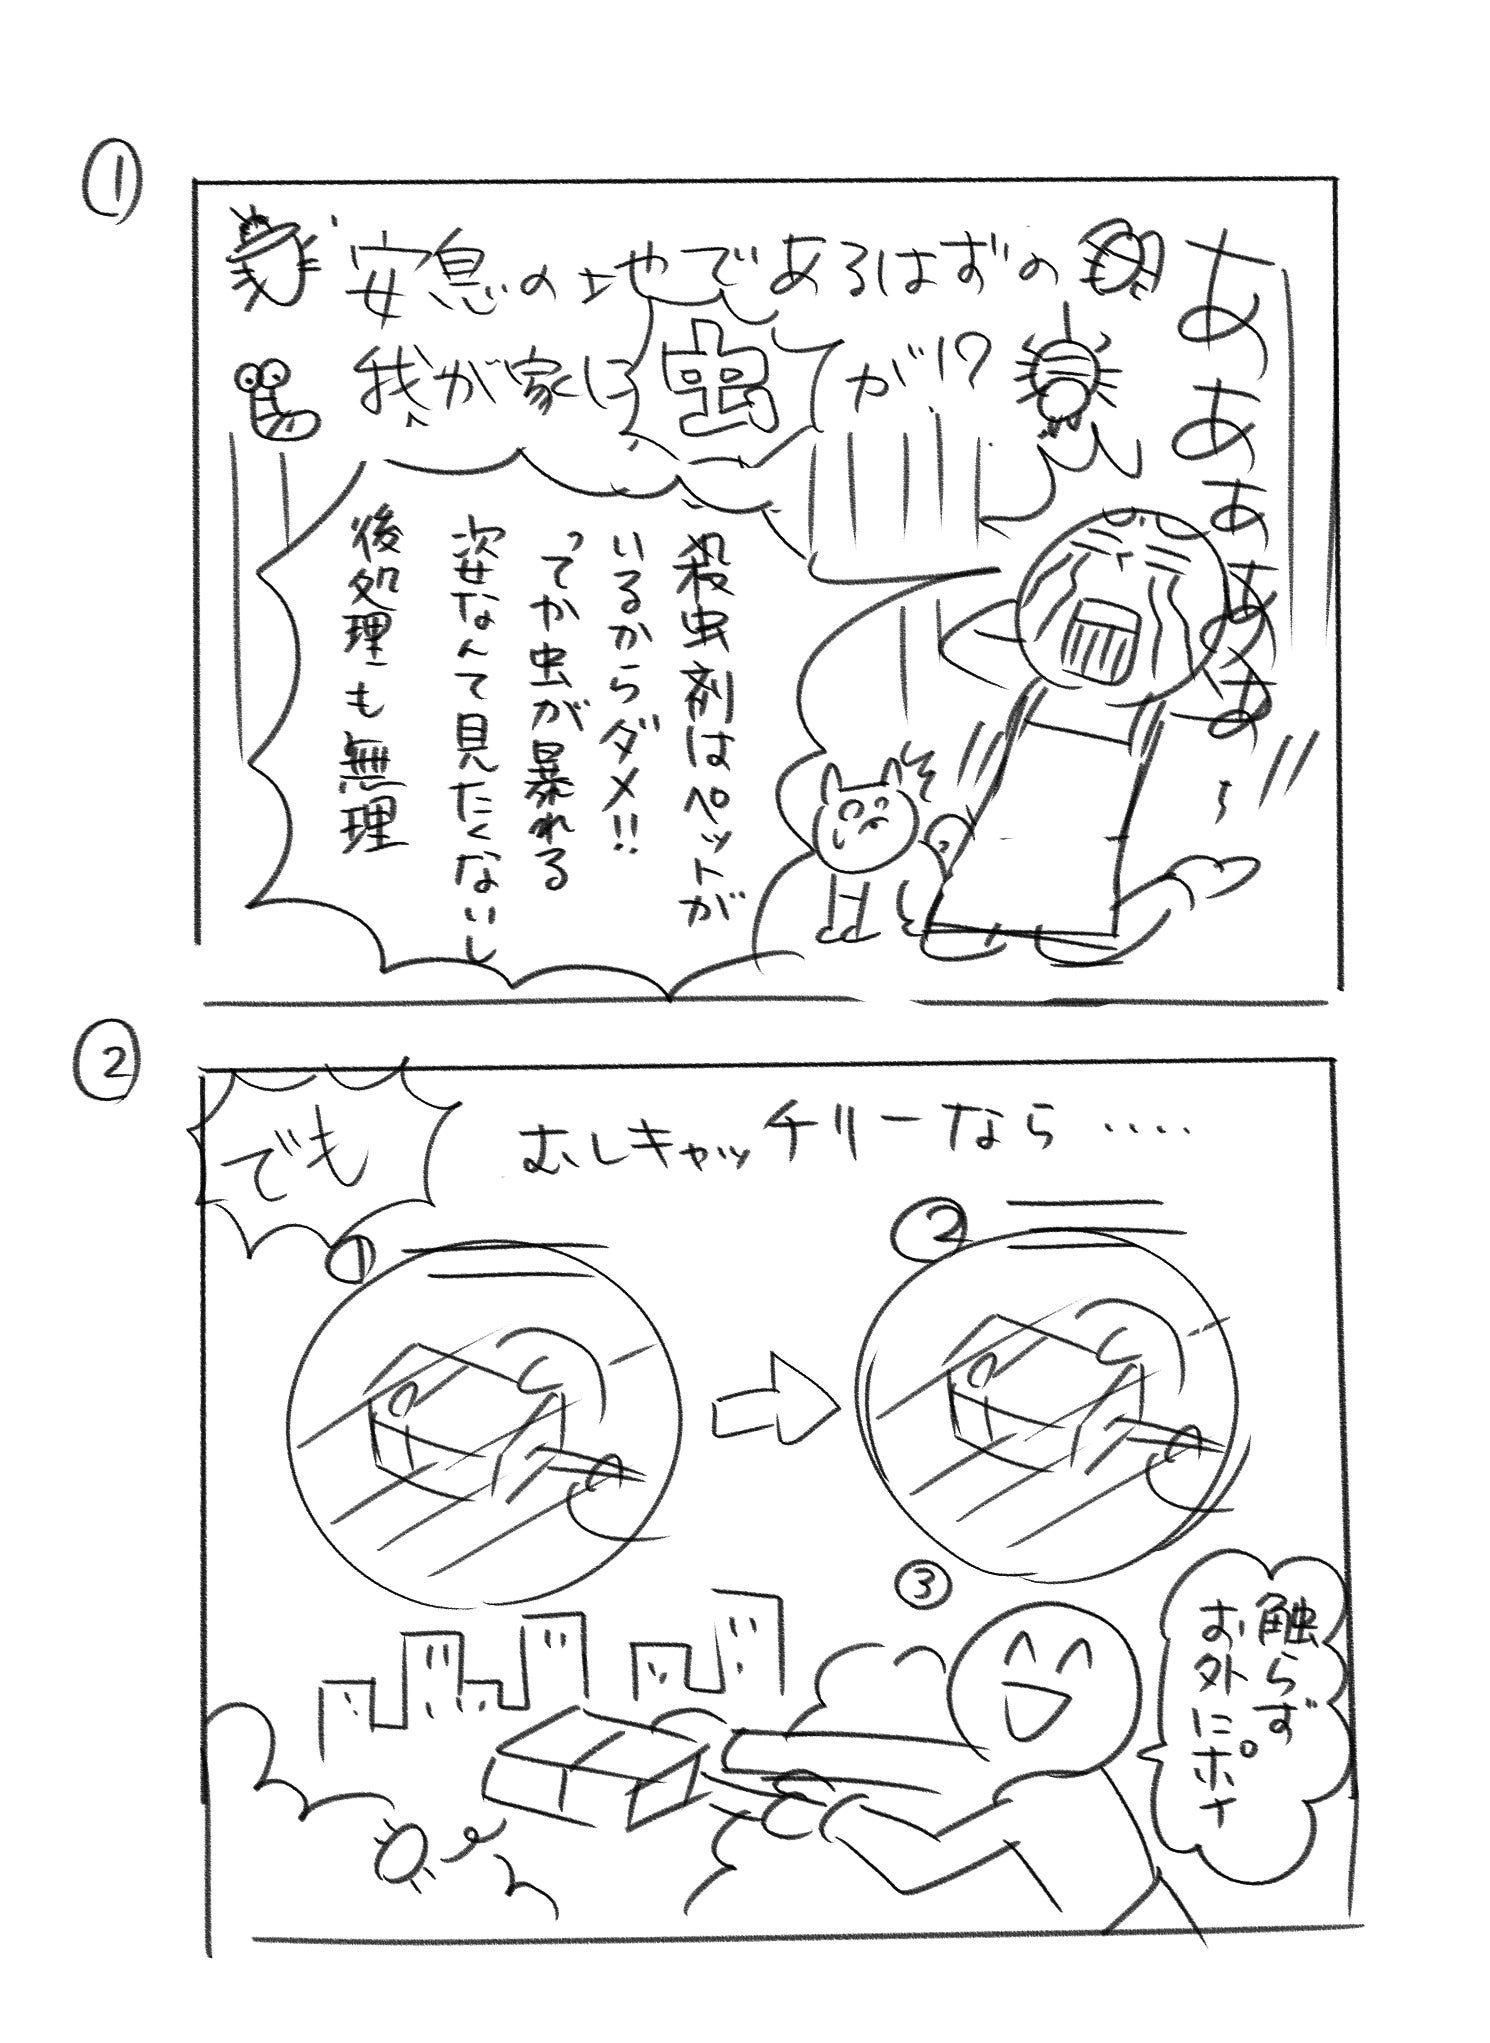 ①
安息の地であるはずの
我が家に虫が!?
ああああああ
殺虫剤はペットが
いるからダメ!!
ってか虫が暴れる
姿なんて見たくないし
後処理も無理
②
でも
むしキャッチリーなら‥‥
①
②
③
触らず
お外にポイ